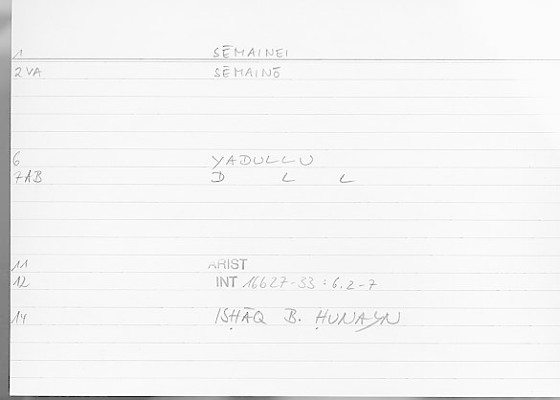 1 SĒMAINEI
2VA SĒMAINŌ
6 YADULLU
7AB D L L
11 ARIST
12 INT 16627-33 : 6.2-7
14 ISḤĀQ B. ḤUNAYN